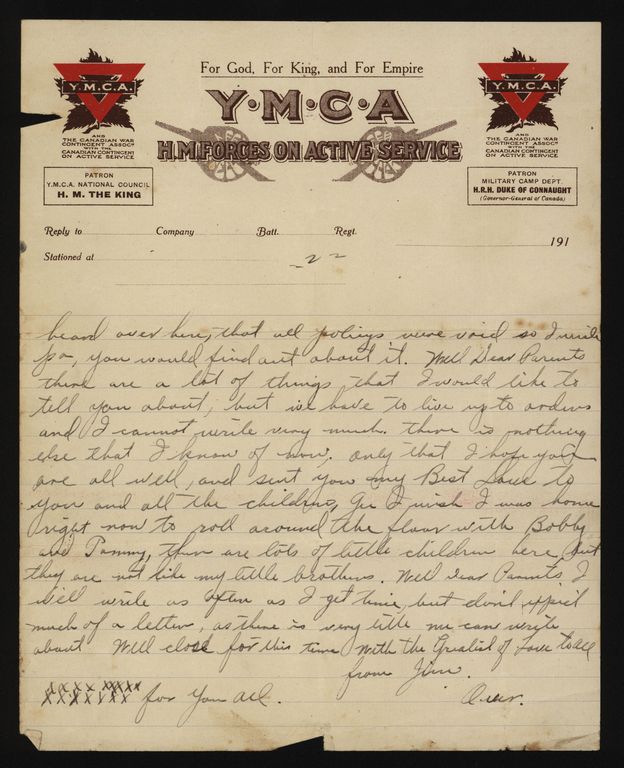 For God, For King, and For Empire
Y·M·C·A
H.M. FORCES ON ACTIVE SERVICE
Y.M.C.A.
AND
THE CANADIAN WAR
CONTINGENT ASSOCN
WITH THE
CANADIAN CONTINGENT
ON ACTIVE SERVICE
PATRON
Y.M.C.A. NATIONAL COUNCIL
H. M. THE KING
Y.M.C.A.
AND
THE CANADIAN WAR
CONTINGENT ASSOCN
WITH THE
CANADIAN CONTINGENT
ON ACTIVE SERVICE
PATRON
MILITARY CAMP DEPT.
H.R.H. DUKE OF CONNAUGHT
(Governor-General of Canada)
Reply to Company Batt. Regt.
191
Stationed at
-2-
heard over here, that all policys were void so I wish
pa, you would find out about it. Well Dear Parents
there are a lot of things that I would like to
tell you about, but we have to live up to orders
and I cannot write very much. there is nothing
else that I know of now. only that I hope you
are all well, and sent you my Best Love to
you and all the children, Gee I wish I was home
right now to roll around the floor with Bobby
and Tammy, there are lots of little children here but
they are not like my little brothers. Well Dear Parents I
will write as often as I get time, but don't expect
much of a letter, as there is very little we can write
about Will close for this time with the Greatest of Love to all
from Jim.
xxxx xxxxx
xxxxxxx for you all. Over.